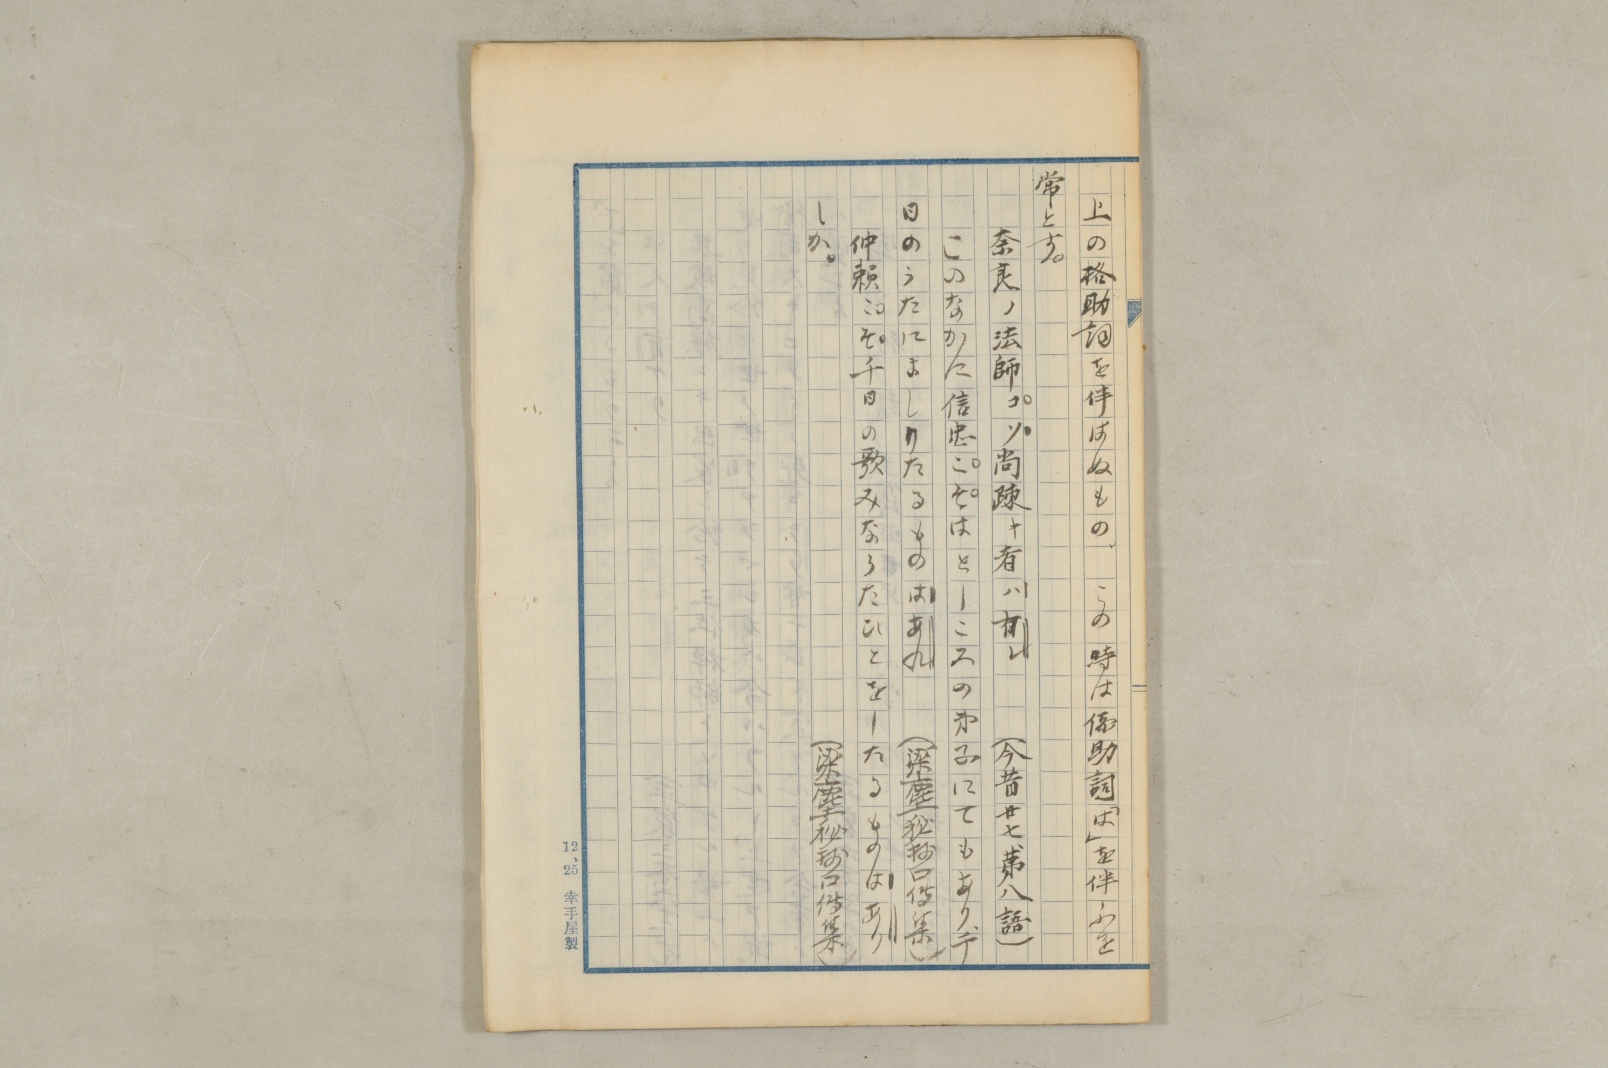 上の格助詞を伴はぬもの、この時は係助詞「は」を伴ふを
常とす。
奈良ノ法師コソ尚疎キ者ハ有レ（今昔廿七、第八語）
このなかに信忠こそはとしころの弟子にてもあり、千
日のうたにましりたるものはあれ（梁塵秘抄口伝集）
仲頼こそ千日の歌みなうたひとをしたるものはあり
しか。（梁塵秘抄口伝集）
12、25 幸手屋製